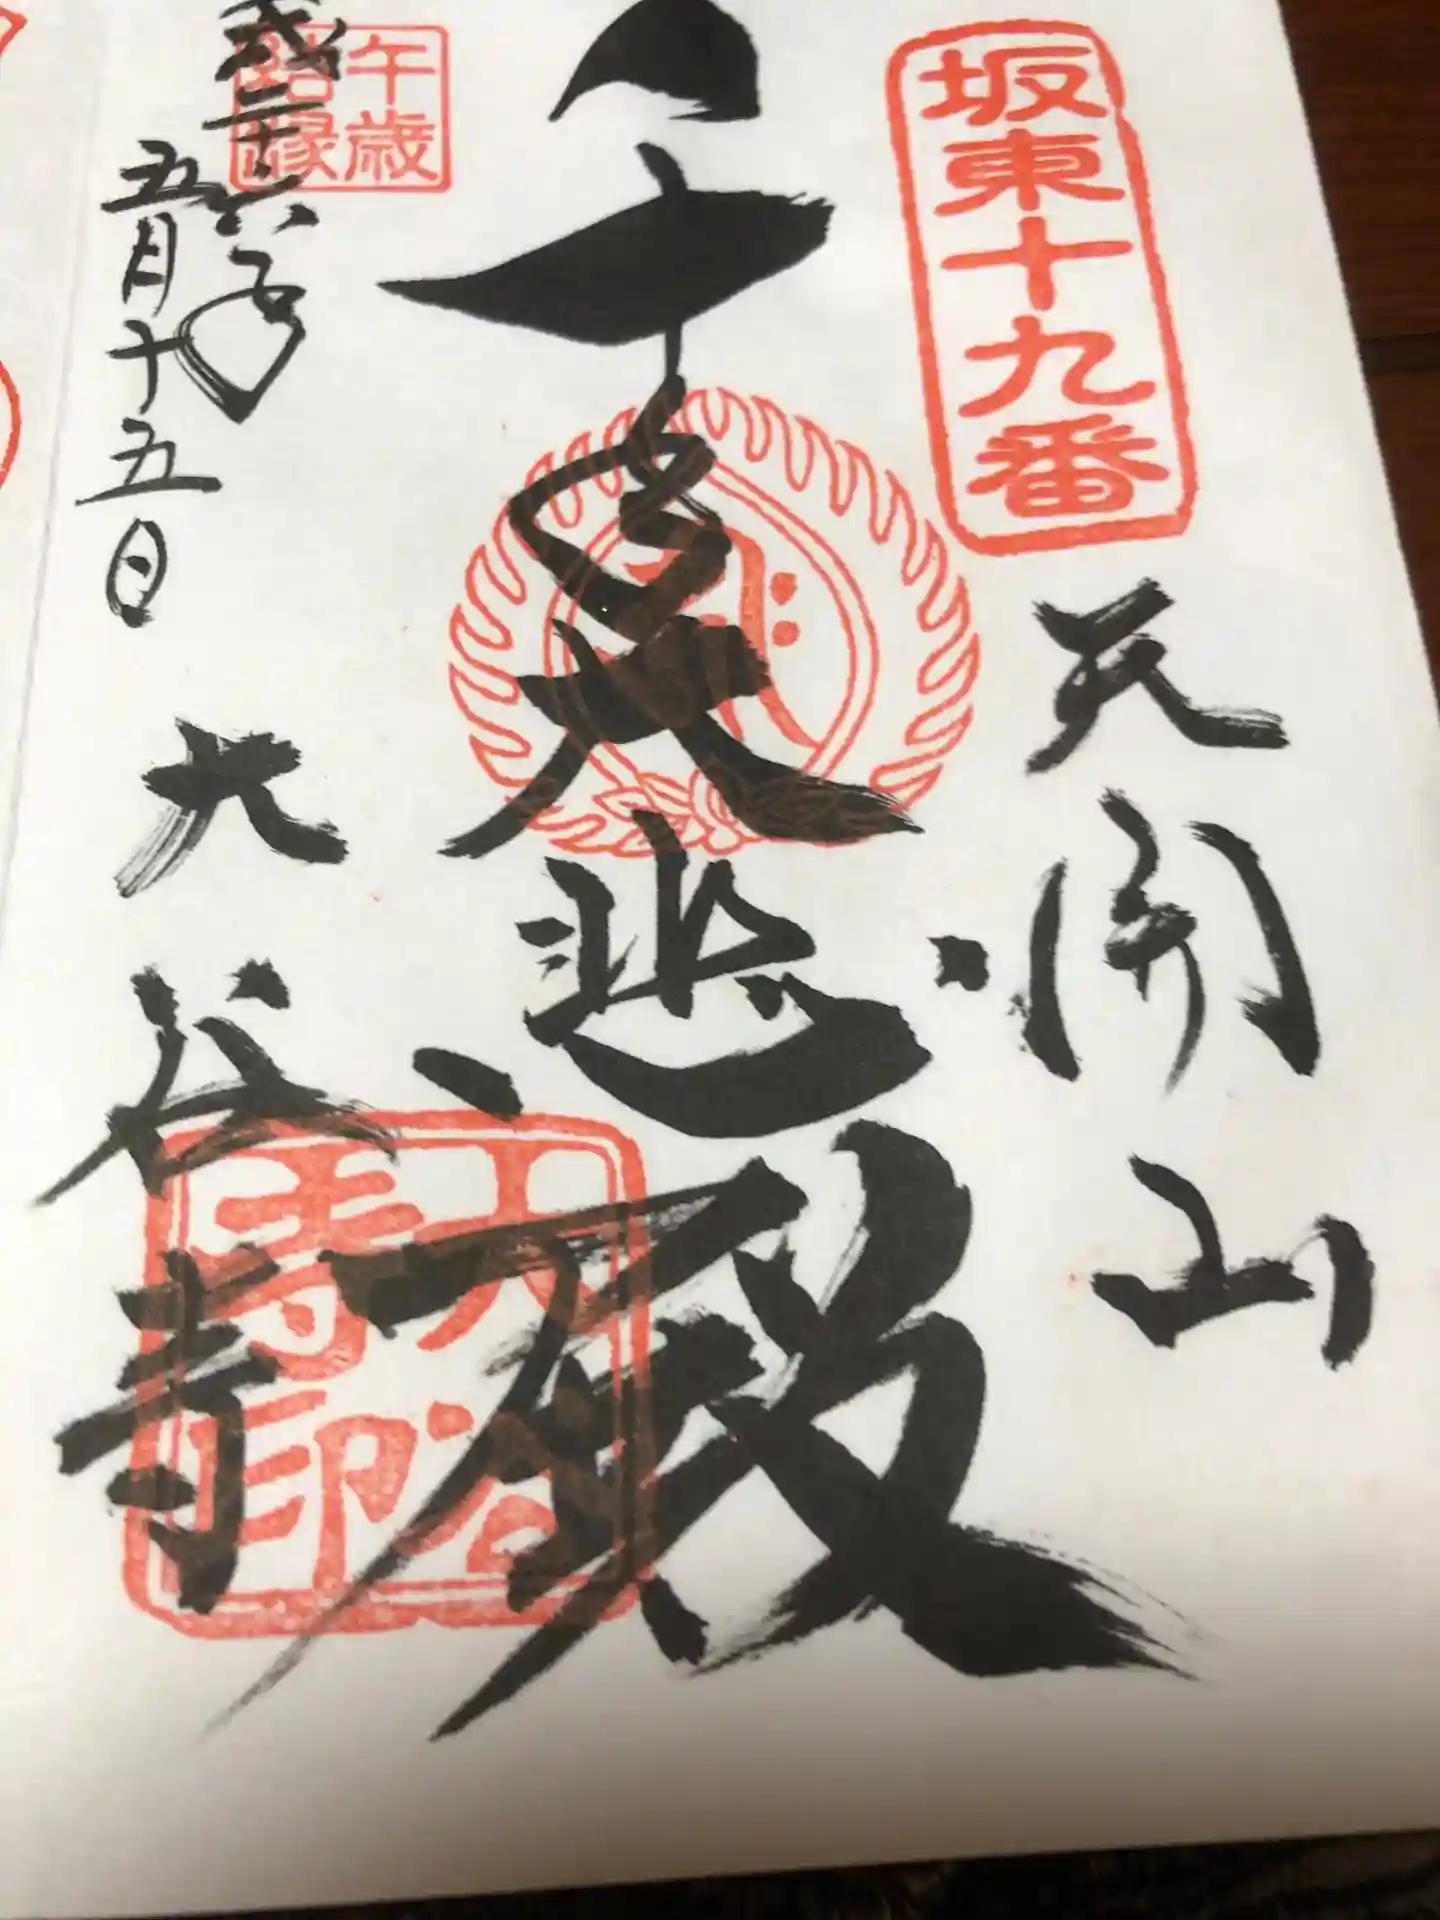 坂東十九番
天開山
千手大悲殿
午歳
結縁
成二十六年
五月十五日
大谷寺
大谷
寺印